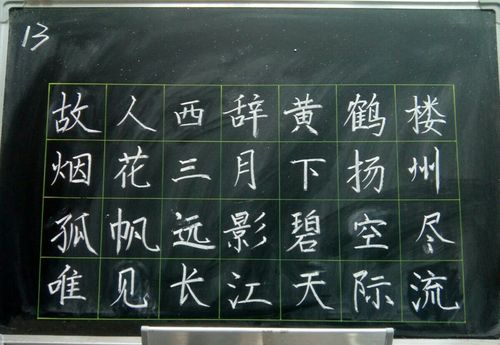 13
故人西辞黄鹤楼
烟花三月下扬州
孤帆远影碧空尽
唯见长江天际流